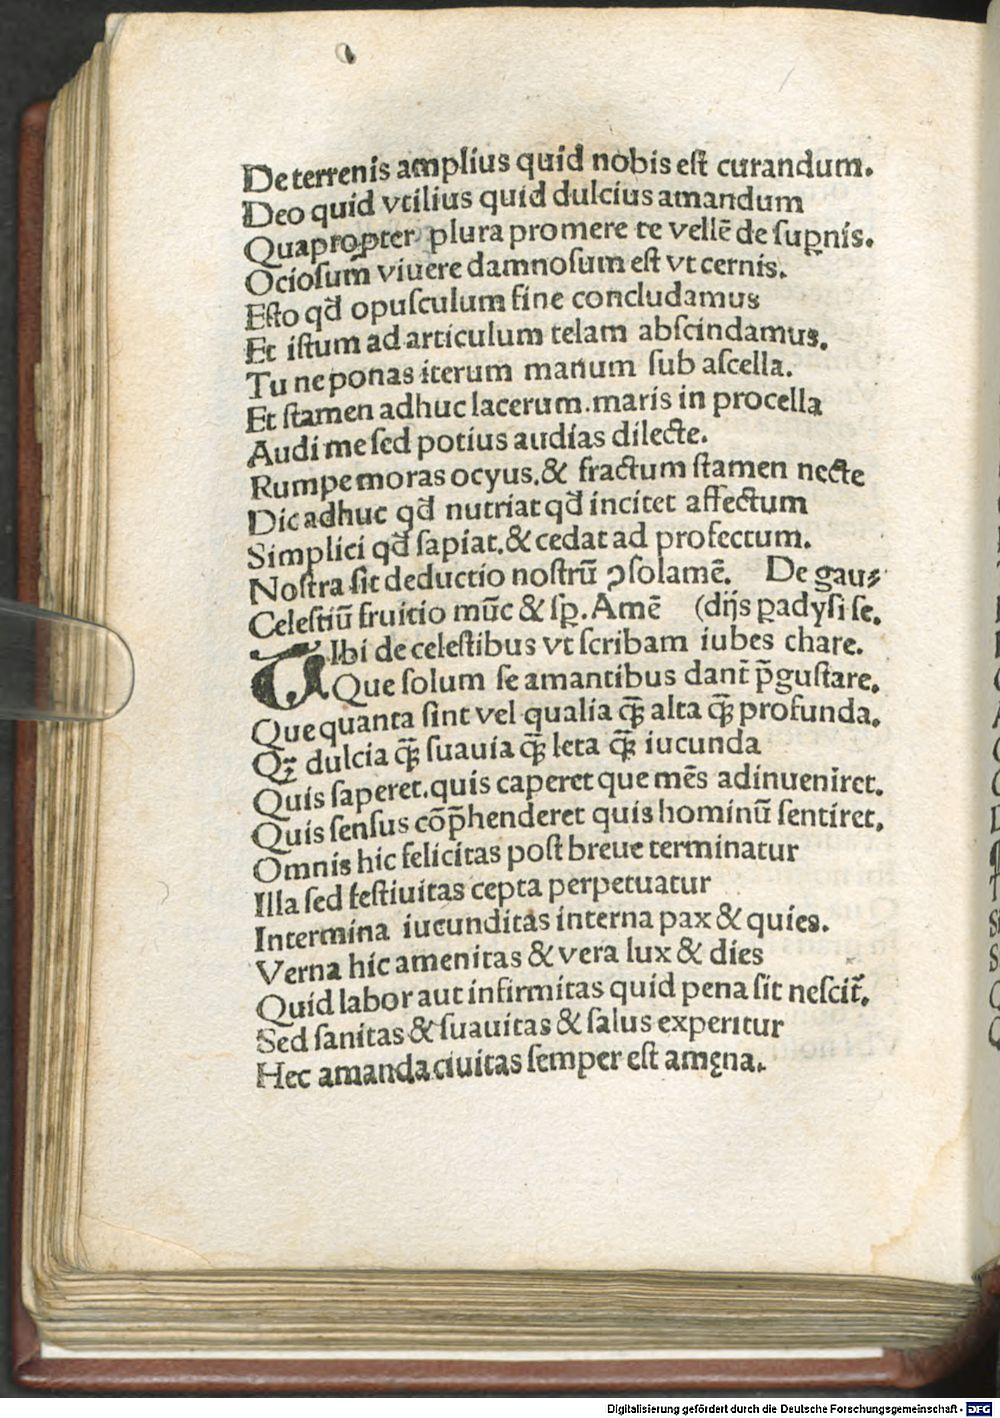 De terrenis amplius quid nobis eſt curandum.
Deo quid vtilius quid dulcius amandum
Quapropter plura promere te vellē de ſuꝑnis.
Ocioſum̄ viuere damnoſum eſt vt cernis.
Eſto qd̄ opuſculum fine concludamus
Et iſtum ad articulum telam abſcindamus.
Tu ne ponas iterum manum ſub aſcella.
Et ſtamen adhuc lacerum.maris in procella
Audi me ſed potius audias dilecte.
Rumpe moras ocyus.& fractum ſtamen necte
Dic adhuc qd̄ nutriat qd̄ incitet affectum
Simplici qd̄ ſapiat.& cedat ad profectum.
Noſtra ſit deductio noſtrū ꝯſolamē. De gau⸗
Celeſtiū fruitio mūc & ſꝑ. Amē (dijs ꝑadyſi ſe.
TIbi de celeſtibus vt ſcribam iubes chare.
Que ſolum ſe amantibus dant̄ p̄guſtare.
Que quanta ſint vel qualia ꝙ̄ alta ꝙ̄ profunda.
Qꝫ̄ dulcia ꝙ̄ ſuauia ꝙ̄ leta ꝙ̄ iucunda
Quis ſaperet.quis caperet que mēs adinueniret.
Quis ſenſus cōp̄henderet quis hominū ſentiret.
Omnis hic felicitas poſt breue terminatur
Illa ſed feſtiuitas cepta perpetuatur
Intermina iucunditas interna pax & quies.
Verna hic amenitas & vera lux & dies
Quid labor aut infirmitas quid pena ſit neſcit̄.
Sed ſanitas & ſuauitas & ſalus experitur
Hec amanda ciuitas ſemper eſt amęna.
Digitalisierung gefördert durch die Deutsche Forschungsgemeinschaft - DFG